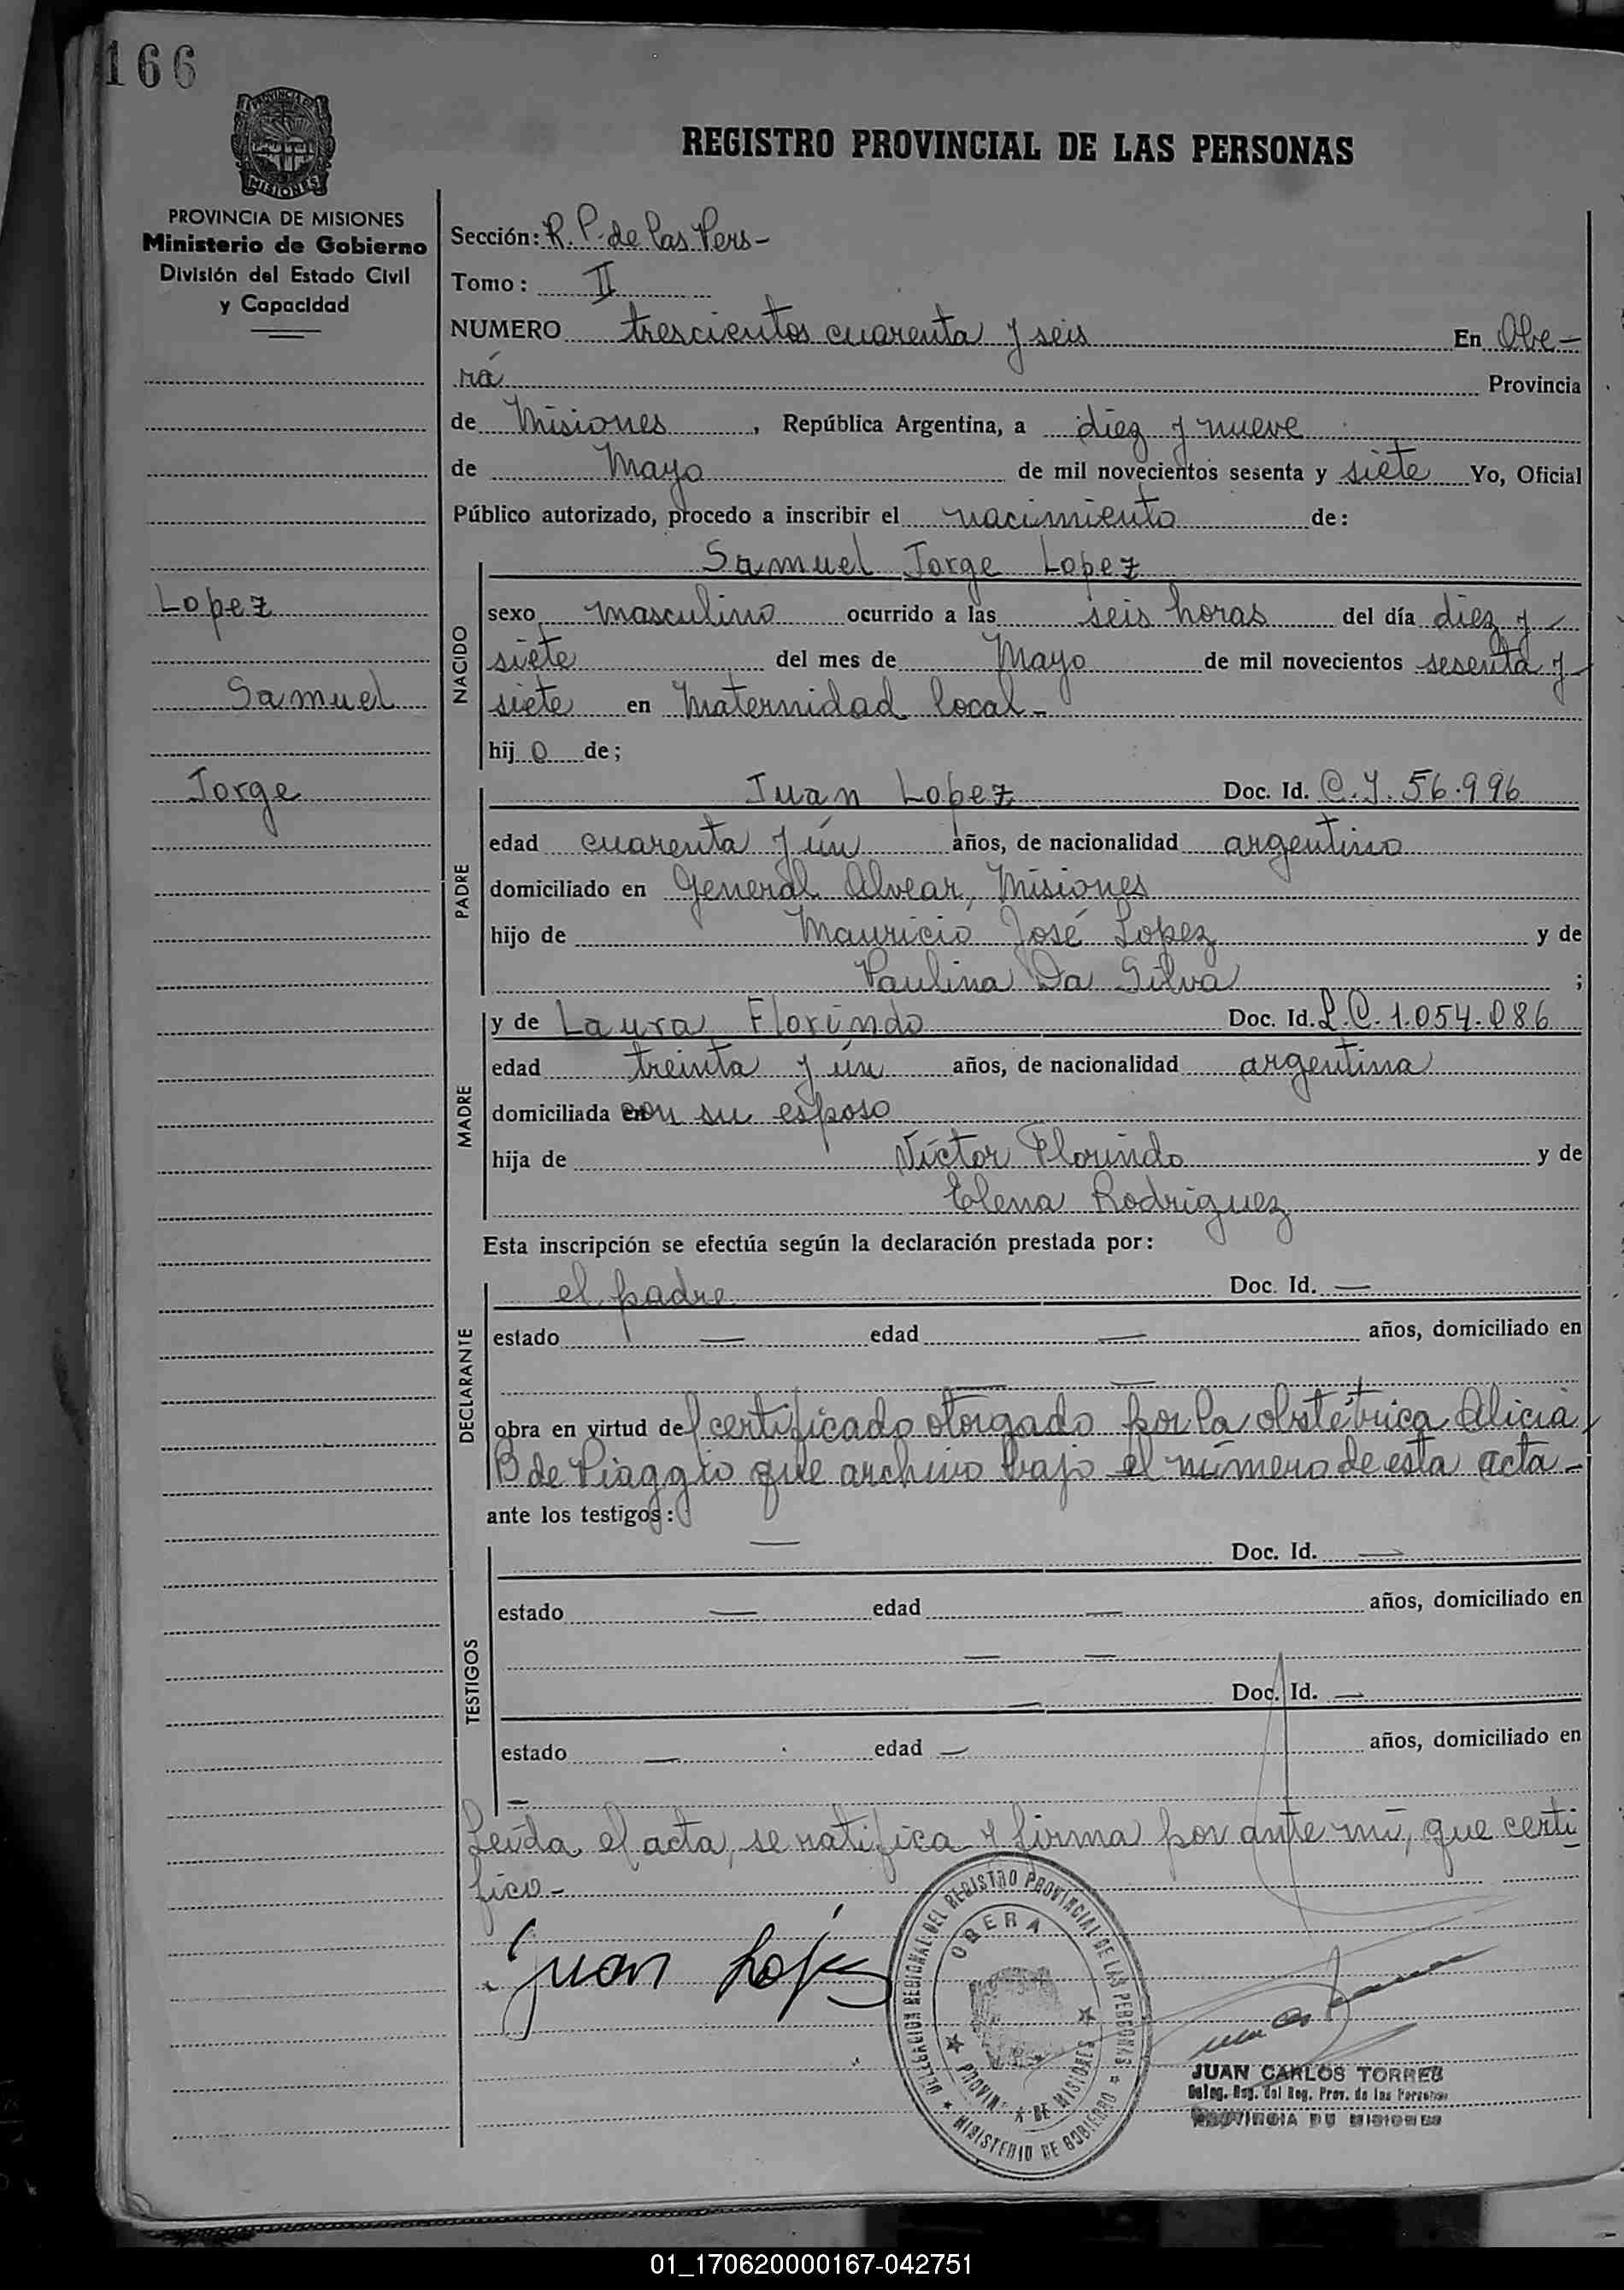 166
PROVINCIA DE
MISIONES
REGISTRO PROVINCIAL DE LAS PERSONAS
PROVINCIA DE MISIONES
Ministerio de Gobierno
División del Estado Civil
y Capacidad
Sección: R. P. de las Pers-
Tomo: II
NUMERO trescientos cuarenta y seis En Obe-
rá Provincia
de Misiones, República Argentina, a diez y nueve
de Mayo de mil novecientos sesenta y siete Yo, Oficial
Público autorizado, procedo a inscribir el nacimiento de:
Lopez
Samuel
Jorge
NACIDO
Samuel Jorge Lopez
sexo masculino ocurrido a las seis horas del día diez y
siete del mes de Mayo de mil novecientos sesenta y
siete en Maternidad local-
hijo de;
PADRE
Juan Lopez Doc. Id. C.I. 56.996
edad cuarenta y ún años, de nacionalidad argentino
domiciliado en General Alvear, Misiones
hijo de Mauricio José Lopez y de
Paulina Da Silva ;
MADRE
y de Laura Florindo Doc. Id. L.C. 1.054.086
edad treinta y ún años, de nacionalidad argentina
domiciliada con su esposo
hija de Víctor Florindo y de
Elena Rodriguez
Esta inscripción se efectúa según la declaración prestada por:
DECLARANTE
el padre Doc. Id. —
estado — edad — años, domiciliado en
— —
obra en virtud del certificado otorgado por la obstétrica Alicia
B de Piaggio que archivo bajo el número de esta acta-
ante los testigos:
TESTIGOS
— Doc. Id. —
estado — edad — años, domiciliado en
— —
— Doc. Id. —
estado — edad — años, domiciliado en
—
Leída el acta, se ratifica y firma por ante mí, que certi
fico-
Juan Lopez
DELEGACION REGIONAL DEL REGISTRO PROVINCIAL DE LAS PERSONAS
MINISTERIO DE GOBIERNO
OBERA
PROVIN DE MISIONES
JUAN CARLOS TORRES
Deleg. Reg. del Reg. Prov. de las Personas
PROVINCIA DE MISIONES
01_170620000167-042751